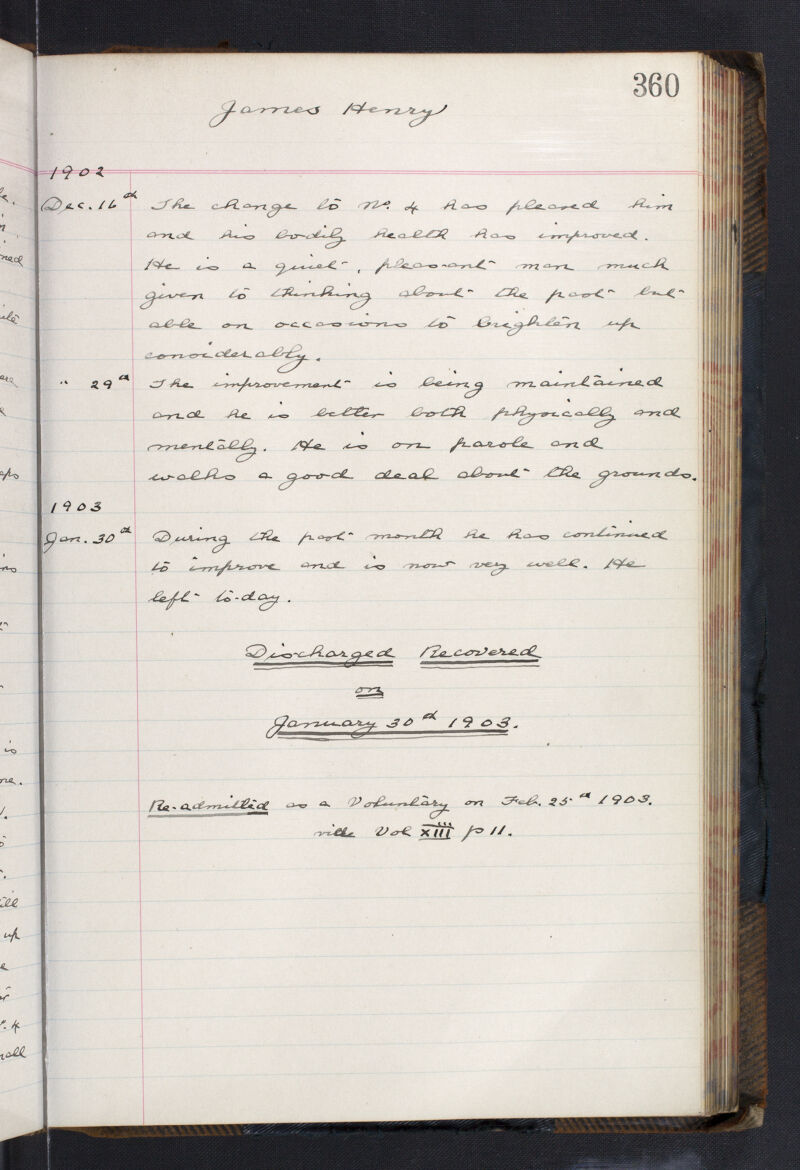 360
James Henry
1902
Dec. 16th The change to No. 4 has pleased him
and his bodily health has improved.
He is a quiet, pleasant man much
given to thinking about the past but
able on occasions to brighten up
considerably.
" 29th The improvement is being maintained
and he is better both physically and
mentally. He is on parole and
walks a good deal about the grounds.
1903
Jan. 30th During the past month he has continued
to improve and is now very well. He
left to-day.
Discharged Recovered
on
January 30th 1903.
Re-admitted as a Voluntary on Feb. 25th 1903.
vide Vol XIII p 11.